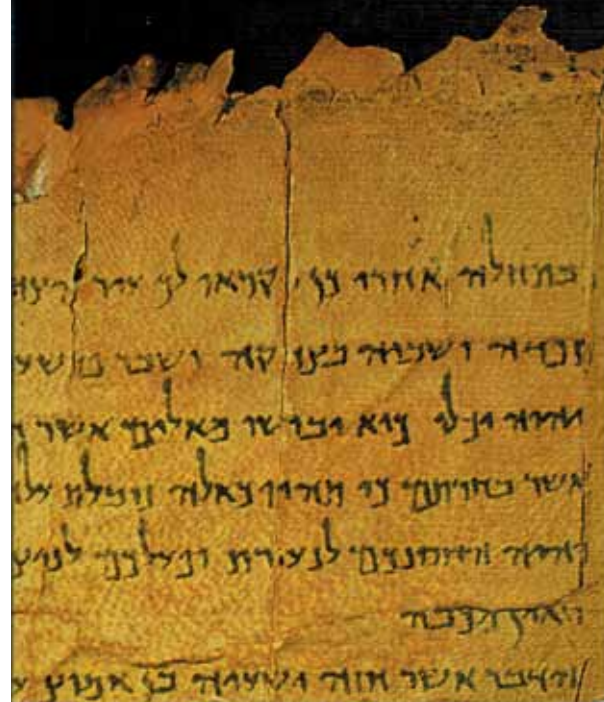 בתחלה אחרי כן יקראו לך עיר הצד
תפדה ושביה בצדקה ושבר פושע
יהוה יכלו כיא יבושו מאלים אשר
אשר בחרתם כי תהיון כאלה נובלת עלה
והיה החסנכם לנעורת ופעלכם לניצ
ואין מכבה
הדבר אשר חזה ישעיה בן אמוץ